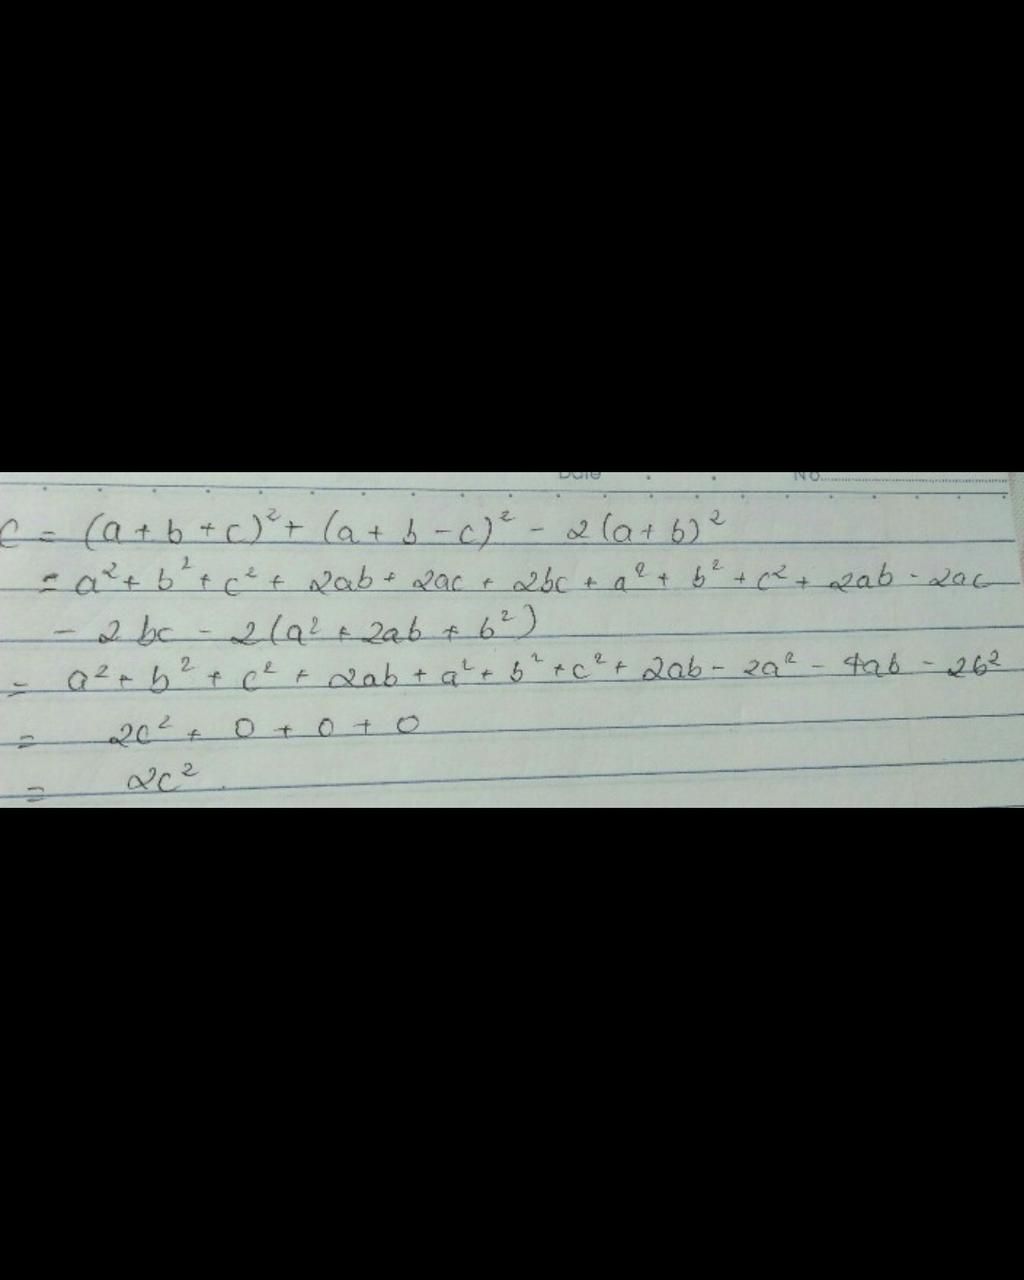 Date No.
C = (a + b + c)² + (a + b - c)² - 2(a + b)²
= a² + b² + c² + 2ab + 2ac + 2bc + a² + b² + c² + 2ab - 2ac
- 2bc - 2(a² + 2ab + b²)
= a² + b² + c² + 2ab + a² + b² + c² + 2ab - 2a² - 4ab - 2b²
= 2c² + 0 + 0 + 0
= 2c².